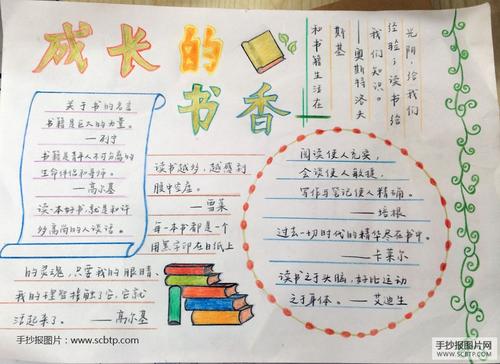 成长的
书香
光阴，给我们
经验；读书给
我们知识。
——奥斯特洛夫
斯基
和书籍生活在
关于书的名言
书籍是巨大的力量。
——列宁
书籍是青年人不可分离的
生命伴侣和导师。
——高尔基
读一本好书，就是和许
多高尚的人谈话。
读书越多，越感到
腹中空虚。
——雪莱
每一本都是一个
用黑字印在白纸上
的灵魂，只要我的眼睛、
我的理智接触了它，它就
活起来了。——高尔基
阅读使人充实，
会谈使人敏捷，
写作与笔记使人精确。
——培根
过去一切时代的精华尽在书中。
——卡莱尔
读书之于头脑，好比运动
之于身体。——艾迪生
手抄报图片：www.scbtp.com
手抄报图片网
www.scbtp.com